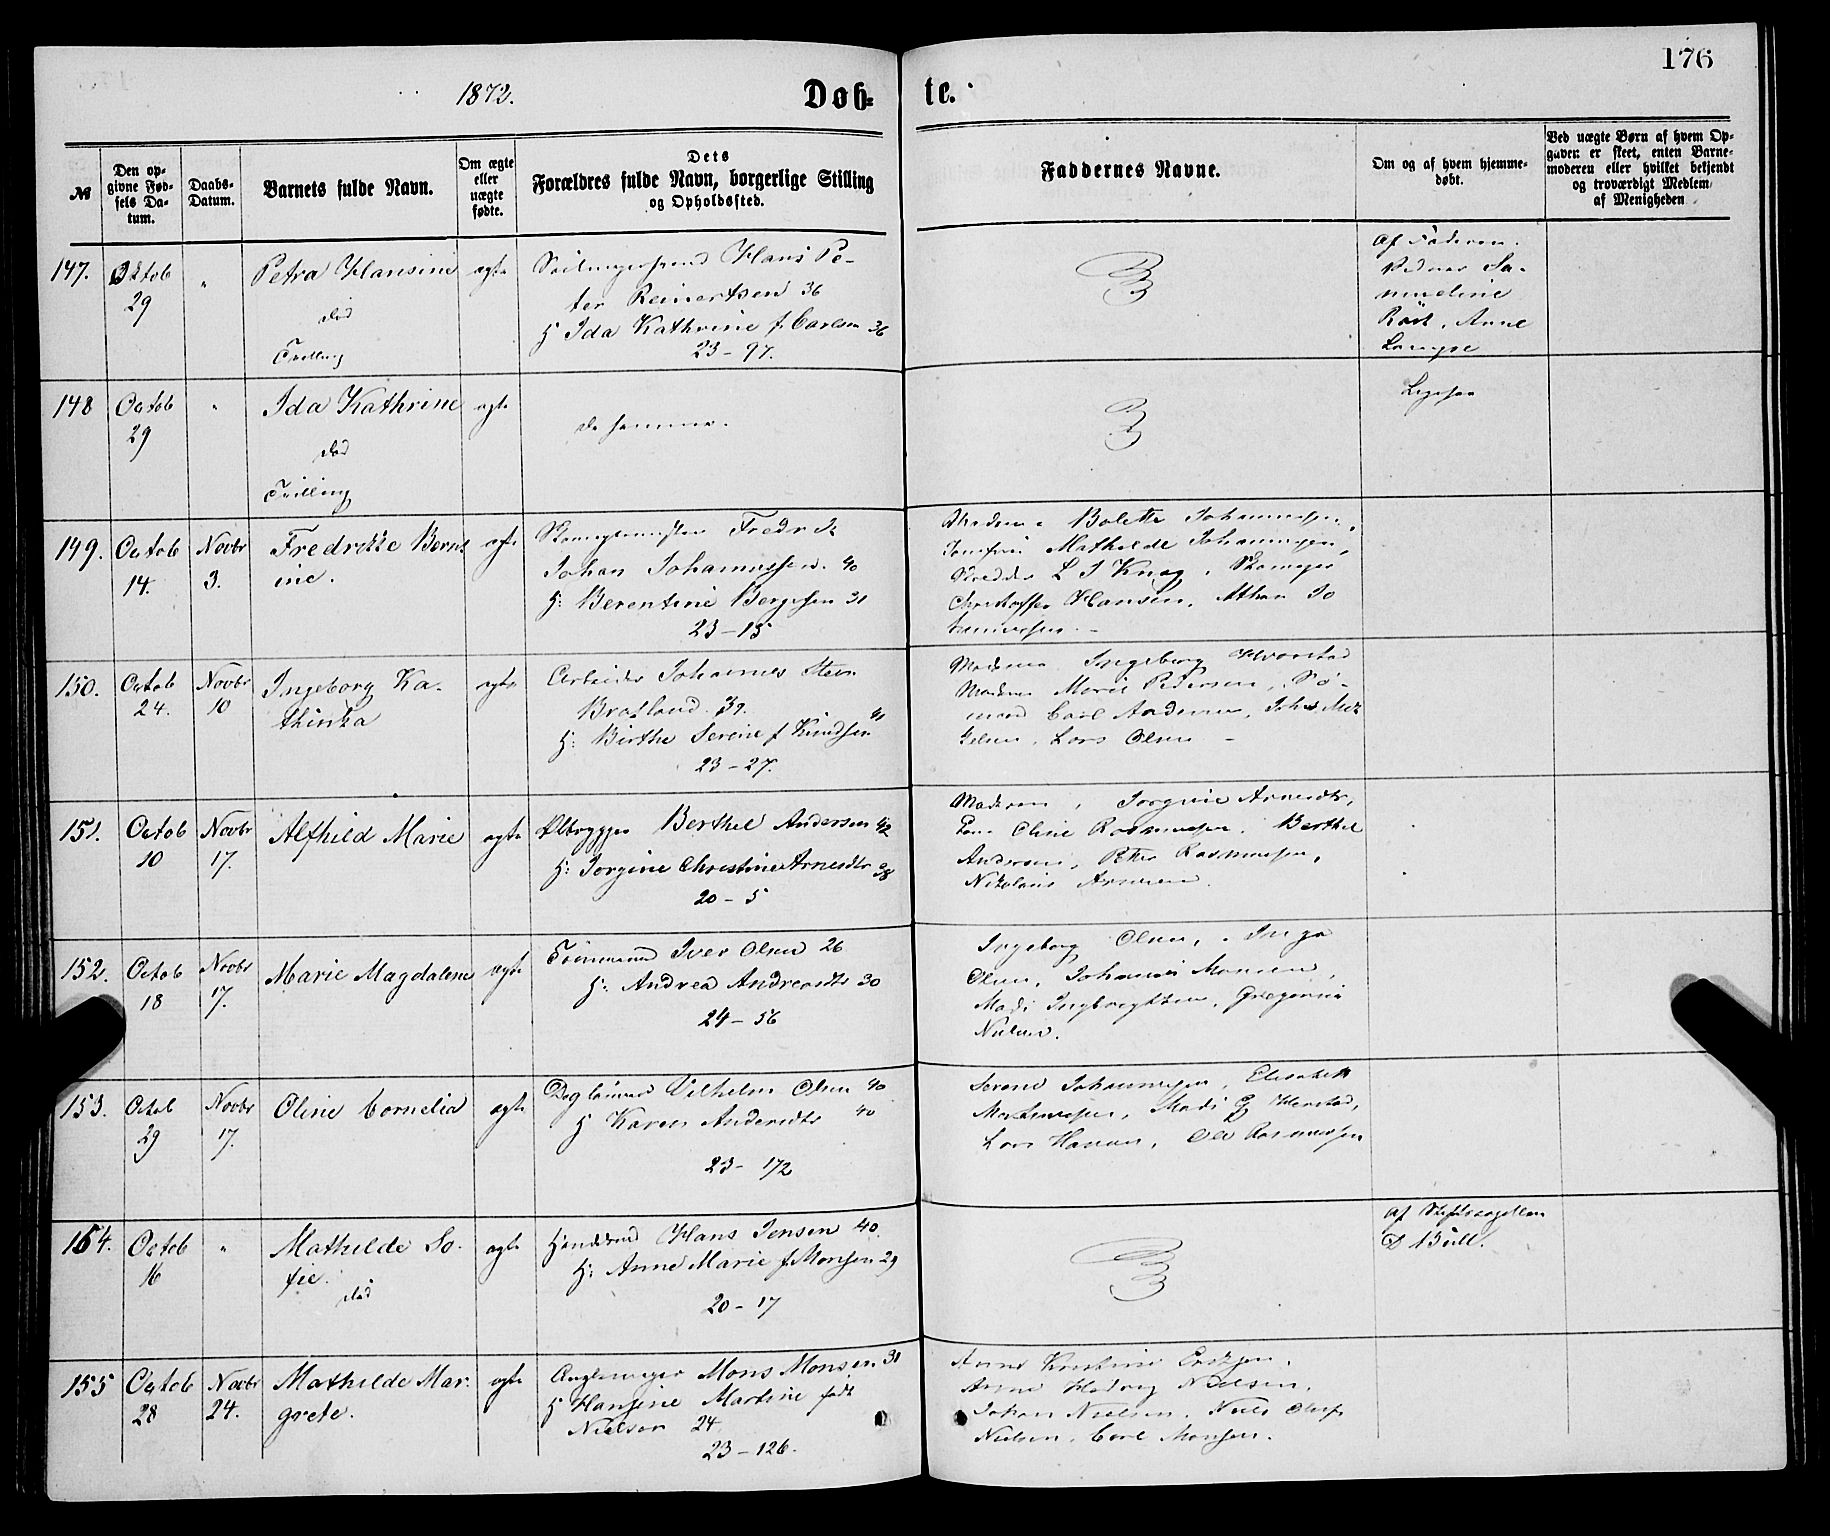 176
1872.
Døb-
te.
№
Den op-
givne Fød-
sels Da-
tum.
Daabs-
Datum.
Barnets fulde Navn.
Om ægte
eller
uægte
fødte.
Dets
Forældres fulde Navn, borgerlige Stilling
og Opholdssted.
Faddernes Navne.
Om og af hvem hjemme-
døbt.
Ved uægte Børn af hvem Op-
gaven er skeet, enten Barne-
moderen eller hvilket bekjendt
og troværdigt Medlem
af Menigheden
147.
Oktob
29
"
Petra Hansine
død
Tvilling
ægte
Hans Pe-
ter Reinertsen 36
H Ida Kathrine f. Carlsen 36
23-97.
Af Faderen.
Anne
148
Octob
29
"
Ida Kathrine
død
Tvilling
ægte
de samme.
Ligesaa
149.
Octob
14.
Novbr
3.
Fredrikke Bernt
ine.
ægte
Skomagermester Fredrik
Johan Johannessen. 40
H: Berentine Børgesen 31
23-15
Madame Bolette Johannessen,
Jomfru Mathilde Johannessen,
L J Knag, Skomager
Christoffer Hansen, Athan Jo
hannessen. -
150.
Octob
24.
Novbr
10
Ingeborg Ka-
thinka
ægte
Arbeider Johannes Steen
Bratland. 39.
H: Birthe Serine f Knudsen 41
23-27.
Madame Ingeborg
Madame Marie Pedersen, Sø-
mand Carl Andersen, Johs Mik
kelsen, Lars Olsen -
151.
Octob
10
Novbr
17.
Alfhild Marie
ægte
Ølbrygger Berthel Andersen 42
H: Jorgine Christine Arnesdtr 38
20-5
Moderen, Jorgine Arnesdtr,
Oline Rasmussen, Berthel
Andersen, Peter Rasmussen,
Nikolai Arnesen.
152.
Octob
18
Novbr
17.
Marie Magdalene
ægte
Iver Olsen 26
H: Andrea Andreasdtr 30
24-56
Ingeborg Olsen, Inga
Olsen, Johannes Monsen,
Mads Ingbregtsen,
Nielsen.
153.
Octob
29
Novbr
17.
Oline Cornelia
ægte
Daglønner Vilhelm Olsen 40
H Karen Andersdtr 40
23-172
Serine Johannessen, Elisabeth
Mads
Lars Hansen, Ole Rasmussen
154.
Octob
16
"
Mathilde So-
fie.
død
ægte
Hans Jensen 40.
H: Anne Marie f. Monsen 29
20-17
Af
D Bull.
155
Octob
28
Novbr
24.
Mathilde Mar-
grete.
ægte
Mons Monsen 31
H Hansine Martine født
Nielsen 24.
23-126.
Anne Kristine Eriksen,
Anne Hedvig Nielsen,
Johan Nielsen, Niels Oluf
Nielsen, Carl Monsen.